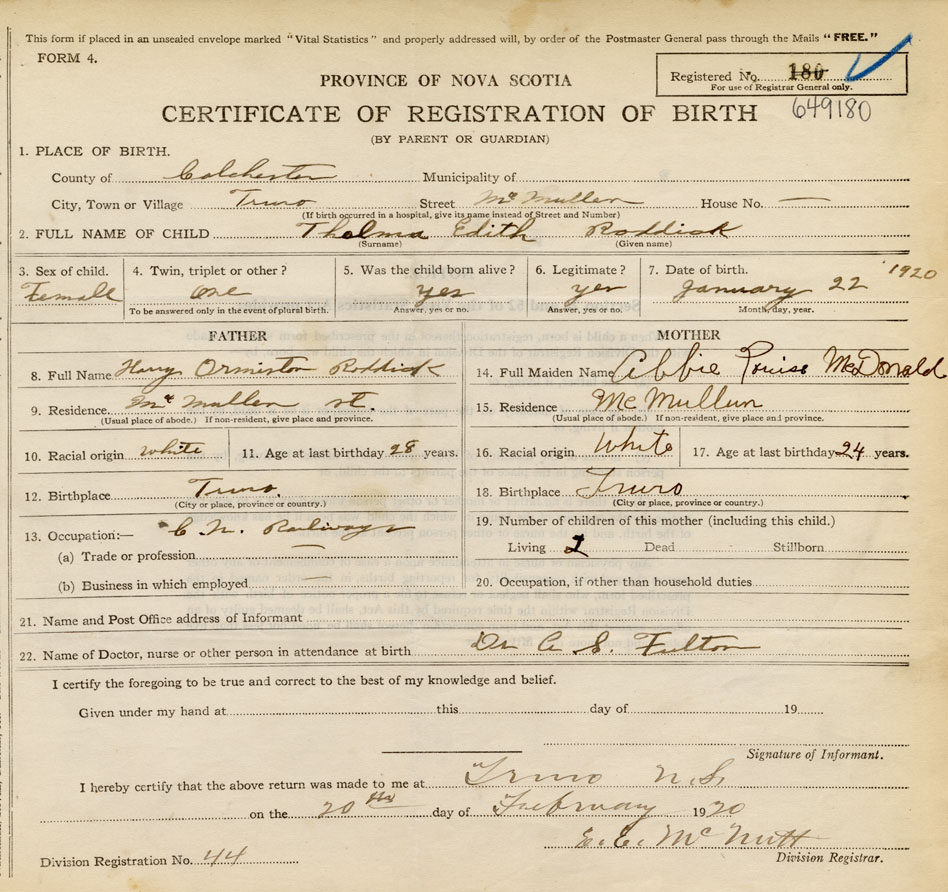 This form if placed in an unsealed envelope marked "Vital Statistics" and properly addressed will, by order of the Postmaster General pass through the Mails "FREE."
FORM 4.
Registered No. 180
For use of Registrar General only.
649180
PROVINCE OF NOVA SCOTIA
CERTIFICATE OF REGISTRATION OF BIRTH
(BY PARENT OR GUARDIAN)
1. PLACE OF BIRTH.
County of Colchester Municipality of
City, Town or Village Truro Street McMullen House No. —
(If birth occurred in a hospital, give its name instead of Street and Number)
2. FULL NAME OF CHILD Thelma Edith Roddick
(Surname) (Given name)
3. Sex of child. 4. Twin, triplet or other? 5. Was the child born alive? 6. Legitimate? 7. Date of birth. 1920
Female one yes yes January 22
To be answered only in the event of plural birth. Answer, yes or no. Answer, yes or no. Month, day, year.
FATHER MOTHER
8. Full Name Harry Ormiston Roddick 14. Full Maiden Name Abbie Louise McDonald
9. Residence McMullen st. 15. Residence McMullen
(Usual place of abode.) If non-resident, give place and province. (Usual place of abode.) If non-resident, give place and province.
10. Racial origin white 11. Age at last birthday 28 years. 16. Racial origin White 17. Age at last birthday 24 years.
12. Birthplace Truro. 18. Birthplace Truro
(City or place, province or country.) (City or place, province or country.)
13. Occupation:— C. N. Railways 19. Number of children of this mother (including this child.)
(a) Trade or profession — Living Dead Stillborn
(b) Business in which employed — 20. Occupation, if other than household duties
21. Name and Post Office address of Informant
22. Name of Doctor, nurse or other person in attendance at birth Dr. C. S. Fulton
I certify the foregoing to be true and correct to the best of my knowledge and belief.
Given under my hand at this day of 19
Signature of Informant.
I hereby certify that the above return was made to me at Truro N.S.
on the 20th day of February 1920
E. E. McNutt
Division Registration No. 44 Division Registrar.